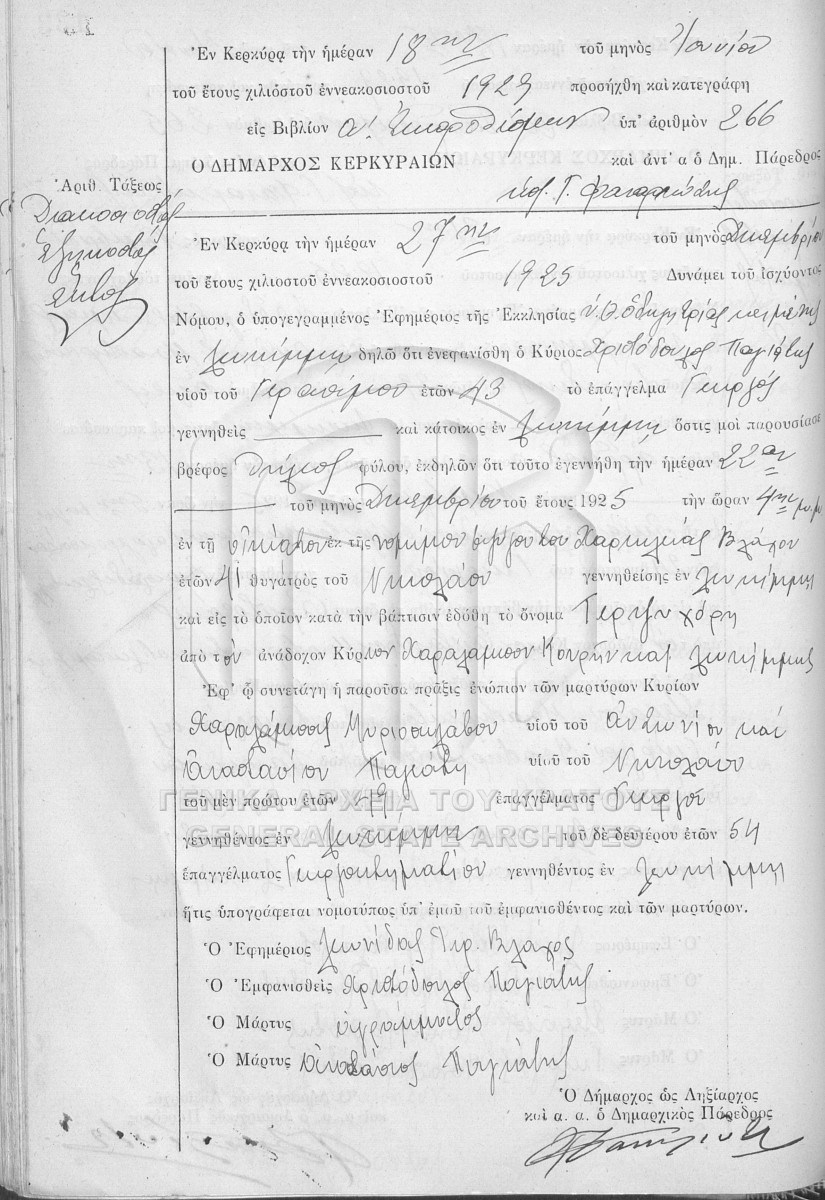 Ἐν Κερκύρᾳ τὴν ἡμέραν 18ην τοῦ μηνὸς Ἰουνίου
τοῦ ἔτους χιλιοστοῦ ἐννεακοσιοστοῦ 1929 προσήχθη καὶ κατεγράφη
εἰς Βιβλίον Α' Ἐκπροθέσμων ὑπ' ἀριθμὸν 266
Ο ΔΗΜΑΡΧΟΣ ΚΕΡΚΥΡΑΙΩΝ καὶ ἀντ' α ὁ Δημ. Πάρεδρος
Ἀριθ. Τάξεως
Διακοσιοστός
ἑξηκοστός
ἕκτος
Ἐν Κερκύρᾳ τὴν ἡμέραν 27ην τοῦ μηνὸς Δεκεμβρίου
τοῦ ἔτους χιλιοστοῦ ἐννεακοσιοστοῦ 1925 Δυνάμει τοῦ ἰσχύοντος
Νόμου, ὁ ὑπογεγραμμένος Ἐφημέριος τῆς Ἐκκλησίας Ὑ. Θ. Ὁδηγητρίας
ἐν Λευκίμμῃ δηλῶ ὅτι ἐνεφανίσθη ὁ Κύριος Χριστόδουλος Παγιάτης
υἱοῦ τοῦ Γερασίμου ἐτῶν 43 τὸ ἐπάγγελμα Γεωργός
γεννηθεὶς καὶ κάτοικος ἐν Λευκίμμῃ ὅστις μοὶ παρουσίασε
βρέφος θήλεος φύλου, ἐκδηλῶν ὅτι τοῦτο ἐγεννήθη τὴν ἡμέραν 22αν
τοῦ μηνὸς Δεκεμβρίου τοῦ ἔτους 1925 τὴν ὥραν 4ην μ.μ.
ἐν τῇ οἰκίᾳ του ἐκ τῆς νομίμου συζύγου του Χαρικλείας Βλάχου
ἐτῶν 41 θυγατρὸς τοῦ Νικολάου γεννηθείσης ἐν Λευκίμμῃ
καὶ εἰς τὸ ὁποῖον κατὰ τὴν βάπτισιν ἐδόθη τὸ ὄνομα Τερψιχόρη
ἀπὸ τὸν ἀνάδοχον Κύριον Χαράλαμπον Λευκίμμης
Ἐφ' ᾧ συνετάγη ἡ παροῦσα πρᾶξις ἐνώπιον τῶν μαρτύρων Κυρίων
Χαραλάμπους υἱοῦ τοῦ Ἀντωνίου καὶ
Ἀναστασίου Παγιάτη υἱοῦ τοῦ Νικολάου
τοῦ μὲν πρώτου ἐτῶν ἐπαγγέλματος Γεωργοῦ
γεννηθέντος ἐν Λευκίμμῃ τοῦ δὲ δευτέρου ἐτῶν 54
ἐπαγγέλματος Γεωργοκτηματίου γεννηθέντος ἐν Λευκίμμῃ
ἥτις ὑπογράφεται νομοτύπως ὑπ' ἐμοῦ τοῦ ἐμφανισθέντος καὶ τῶν μαρτύρων.
Ὁ Ἐφημέριος Λεωνίδας Ἱερ. Βλάχος
Ὁ Ἐμφανισθεὶς Χριστόδουλος Παγιάτης
Ὁ Μάρτυς ἀγράμματος
Ὁ Μάρτυς Ἀναστάσιος Παγιάτης
Ὁ Δήμαρχος ὡς Ληξίαρχος
καὶ α. α. ὁ Δημαρχικὸς Πάρεδρος
ΓΕΝΙΚΑ ΑΡΧΕΙΑ ΤΟΥ ΚΡΑΤΟΥΣ
GENERAL STATE ARCHIVES